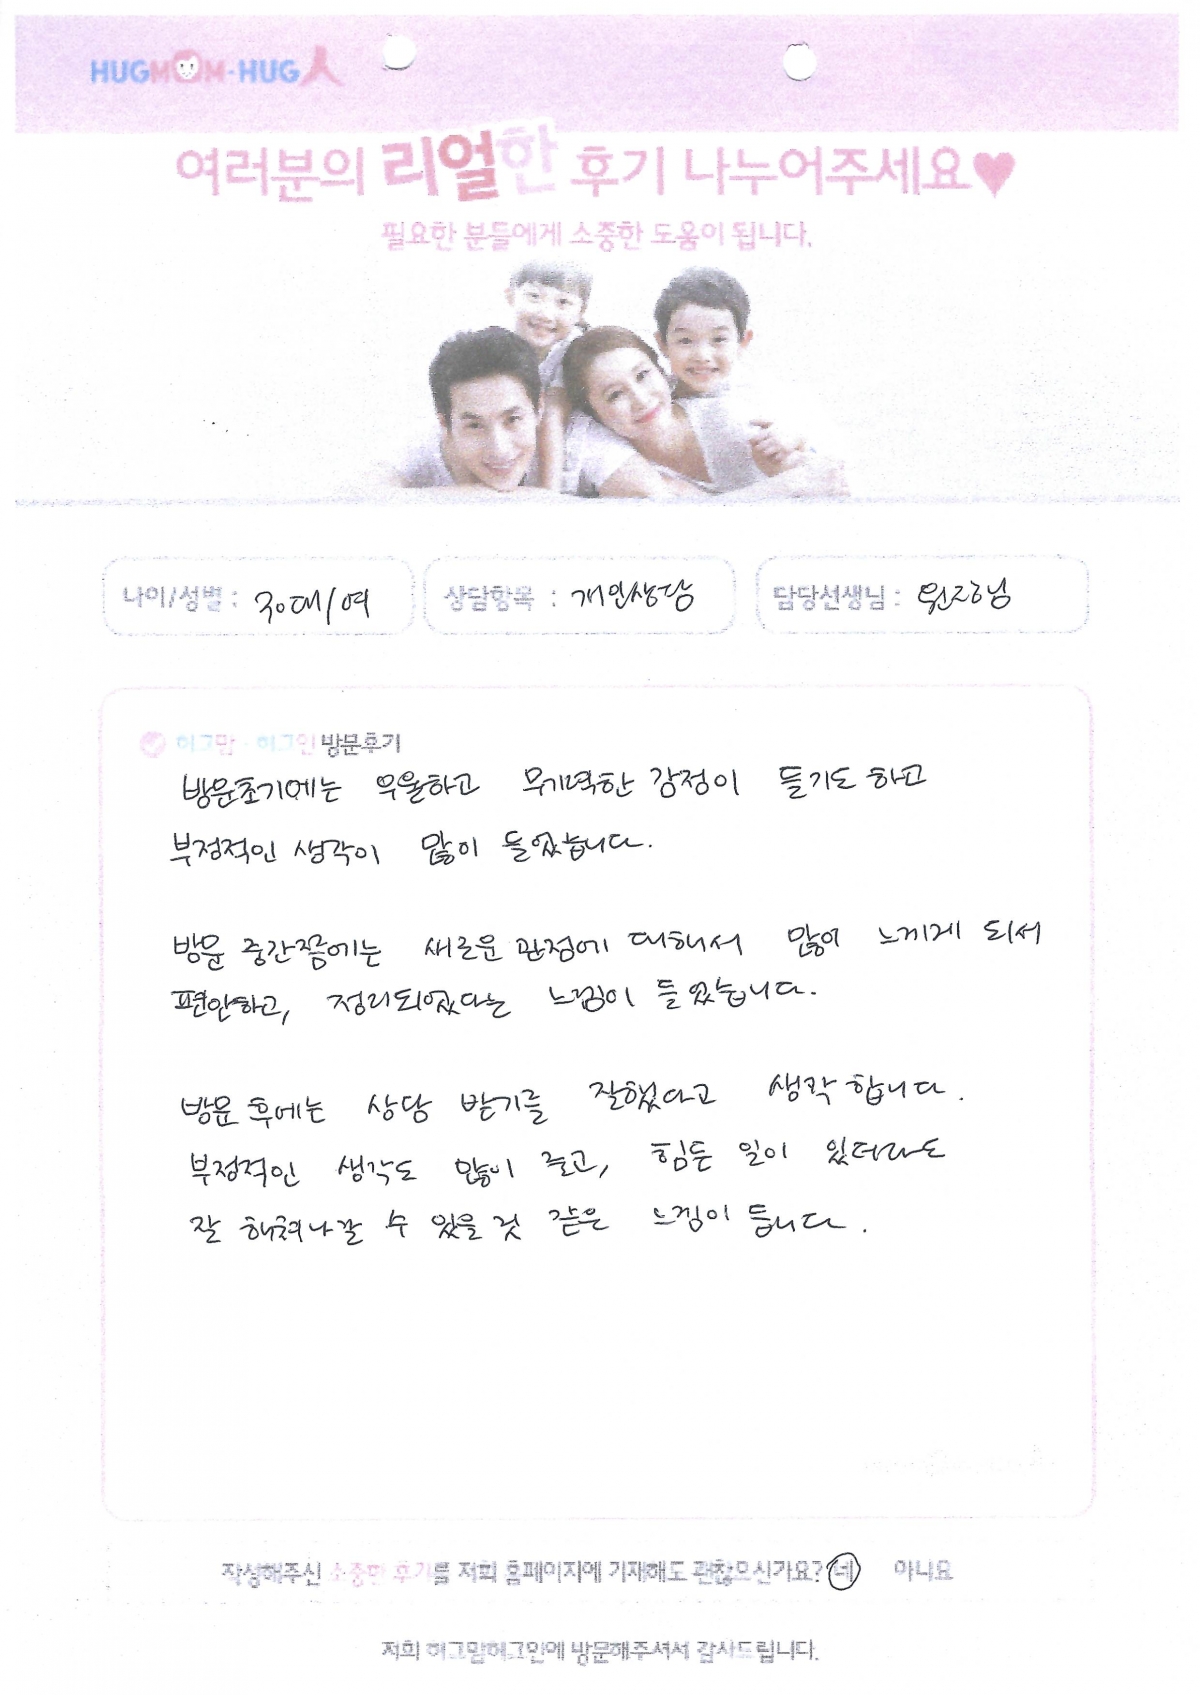 HUGMOM-HUG人
여러분의 리얼한 후기 나누어주세요♥
필요한 분들에게 소중한 도움이 됩니다.
나이/성별 : 30대/여
상담항목 : 개인상담
담당선생님 : 원장님
허그맘·허그인 방문후기
방문초기에는 우울하고 무기력한 감정이 들기도 하고
부정적인 생각이 많이 들었습니다.
방문 중간쯤에는 새로운 관점에 대해서 많이 느끼게 되서
편안하고, 정리되었다는 느낌이 들었습니다.
방문 후에는 상담 받기를 잘했다고 생각합니다.
부정적인 생각도 많이 줄고, 힘든 일이 있더라도
잘 헤쳐나갈 수 있을 것 같은 느낌이 듭니다.
작성해주신 소중한 후기를 저희 홈페이지에 기재해도 괜찮으신가요? 네 아니요
저희 허그맘허그인에 방문해주셔서 감사드립니다.